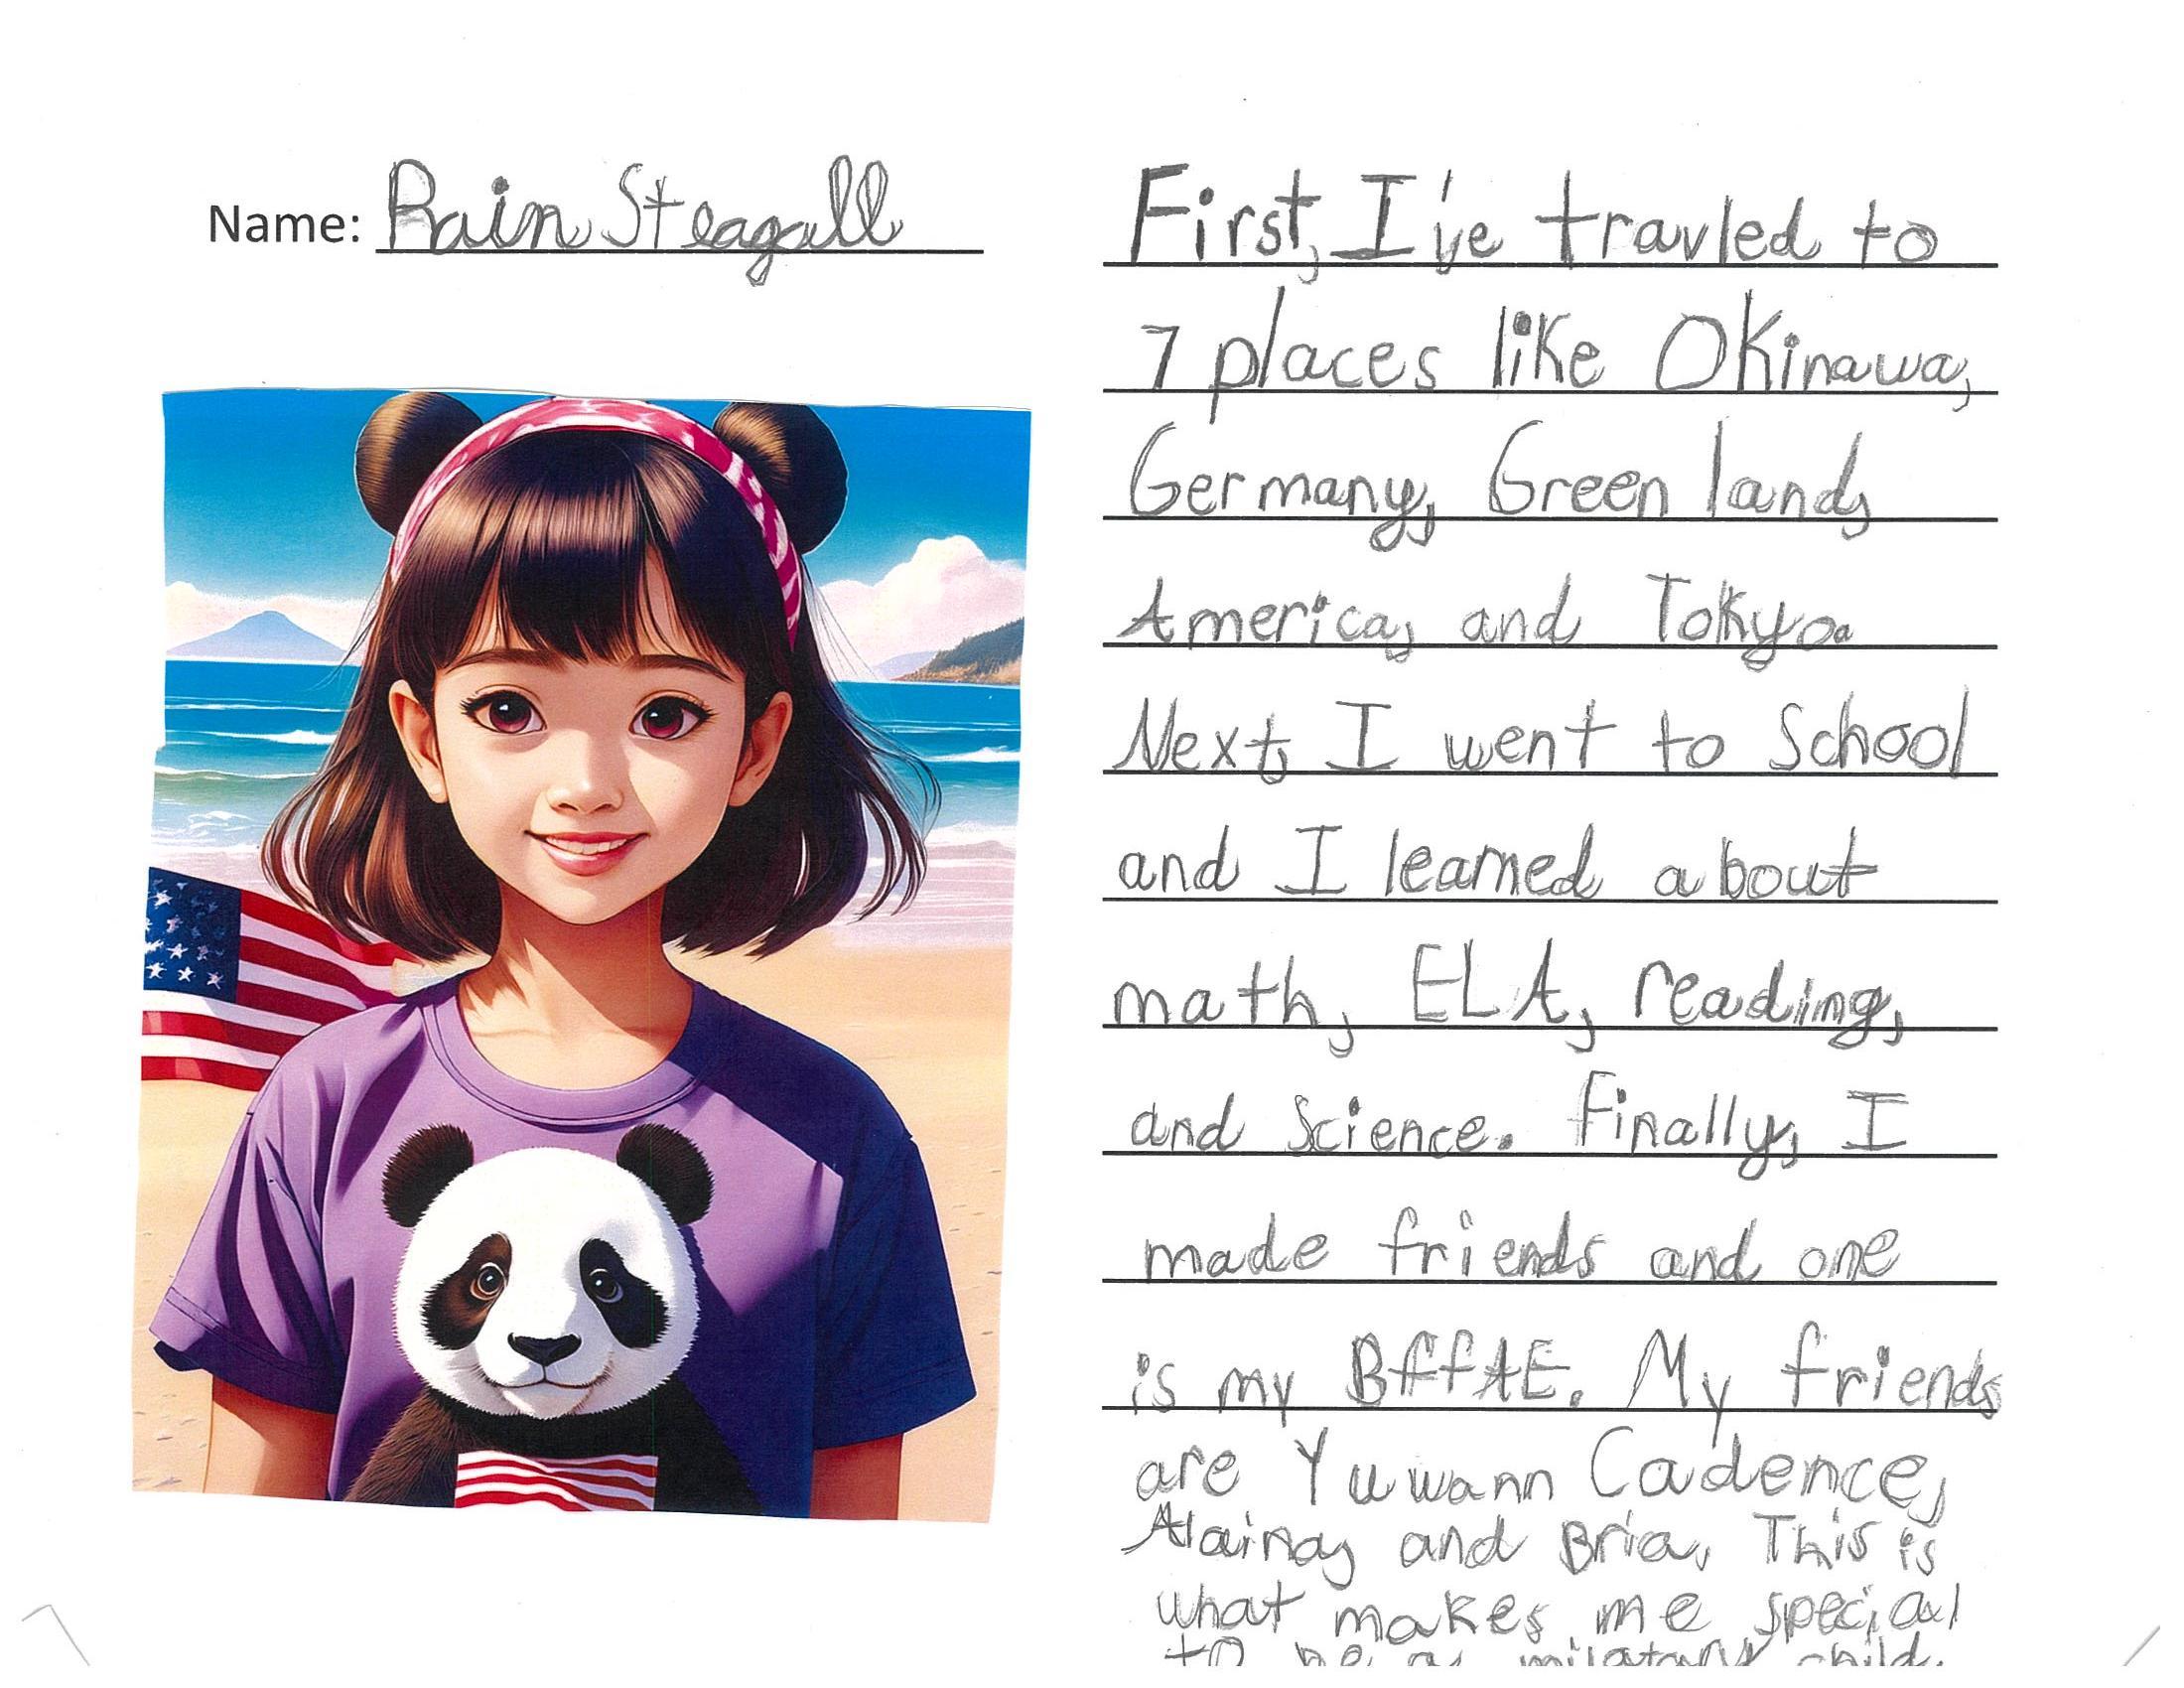 Name: Rain Steagall
First, I've travled to
7 places like Okinawa,
Germany, Green land,
America, and Tokyo.
Next, I went to School
and I learned about
math, ELA, reading,
and Science. Finally, I
made friends and one
is my BffAE. My friends
are Yuwann Cadence,
Alaina, and Bria. This is
what makes me special
to be a milatary child.